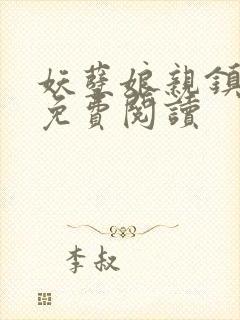 妖孽娘親鎮
免費閱讀
李叔